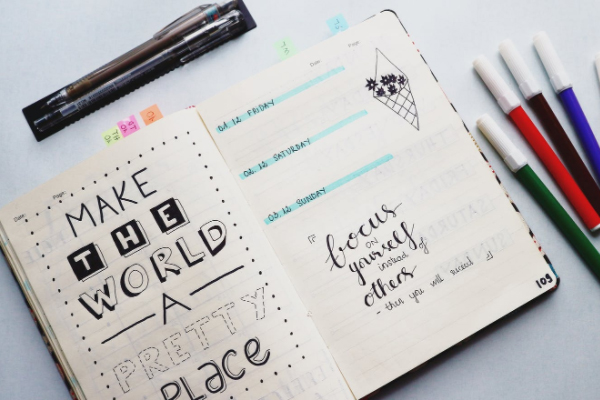 Date: Page:
MAKE
THE
WORLD
A
PRETTY
PLACE
Date: Page:
01. 12 FRIDAY
02. 12 SATURDAY
03. 12 SUNDAY
focus
on
yourself
instead of
others
- then you will succeed